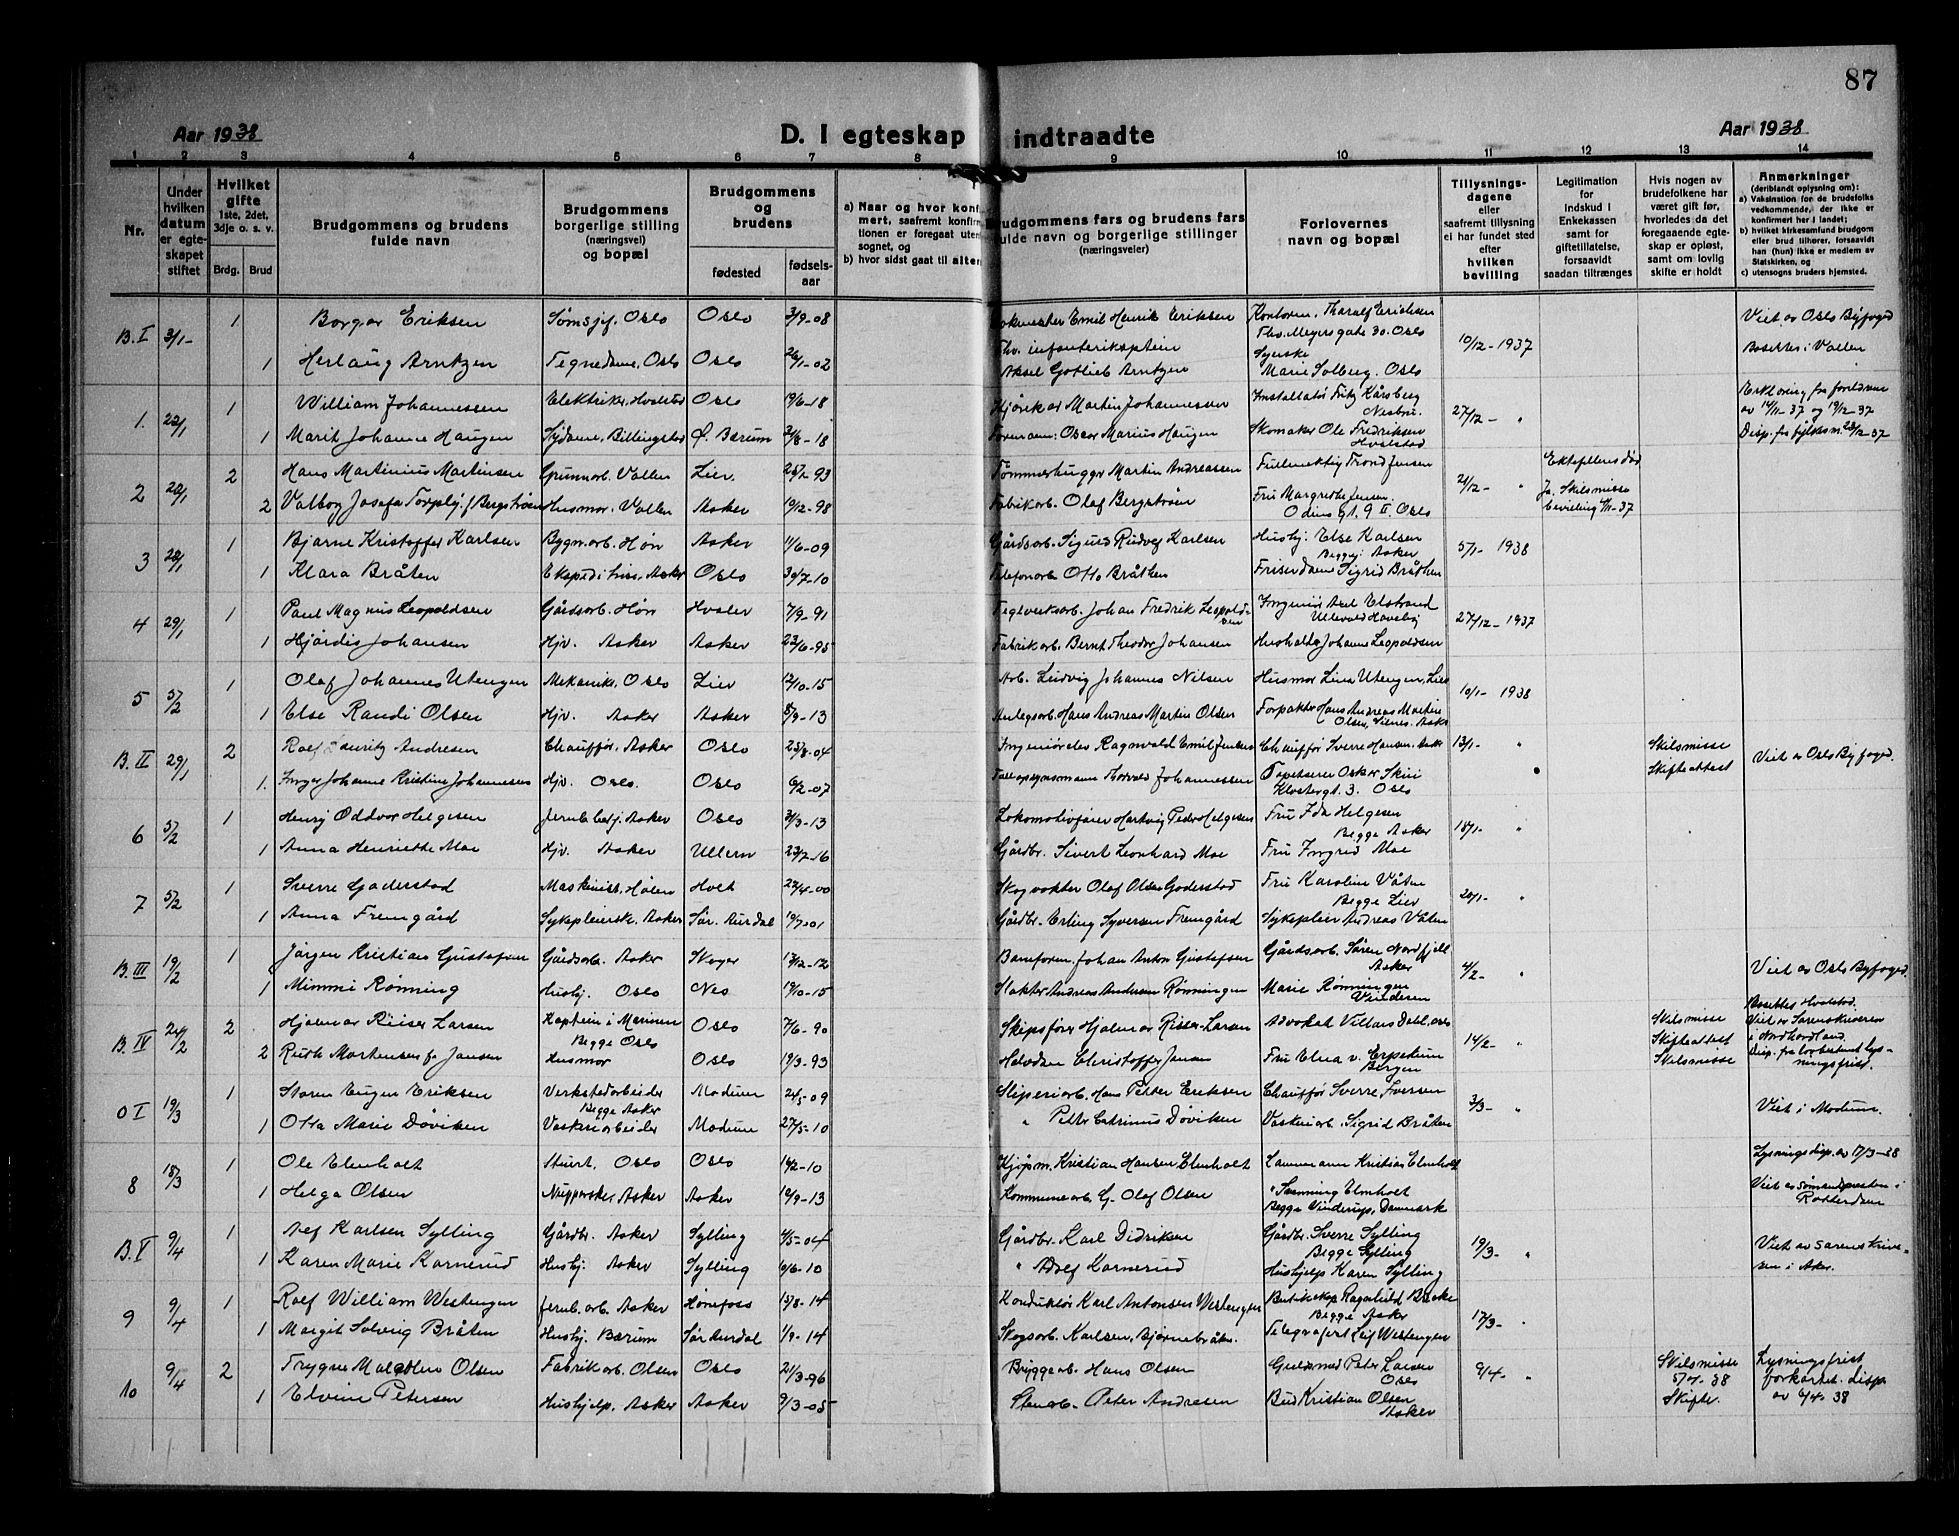 87
Aar 1938
D. I egteskap indtraadte
Aar 1938
1 2 3 4 5 6 7 8 9 10 11 12 13 14
Nr.
Under hvilken datum er egteskapet stiftet
Hvilket gifte 1ste, 2det, 3dje o. s. v.
Brdg. Brud
Brudgommens og brudens fulde navn
Brudgommens borgerlige stilling (næringsvei) og bopæl
Brudgommens og brudens
fødested
fødselsaar
a) Naar og hvor konfirmert, saafremt konfir-
tionen er foregaat uten-
sognet, og
b) hvor sidst gaat til alter
udgommens fars og brudens fars
fulde navn og borgerlige stillinger
(næringsveier)
Forlovernes navn og bopæl
Tillysningsdagene eller saafremt tillysning ei har fundet sted efter hvilken bevilling
Legitimation for Indskud i Enkekassen samt for giftetillatelse, forsaavidt saadan tiltrænges
Hvis nogen av brudefolkene har været gift før, hvorledes da det foregaaende egteskap er opløst, samt om lovlig skifte er holdt
Anmerkninger
(deriblandt oplysning om):
a) Vaksination for de brudefolks vedkommende, der ikke er konfirmert her i landet;
b) hvilket kirkesamfund brudgom eller brud tilhører, forsaavidt han (hun) ikke er medlem av Statskirken, og
c) utensogns bruders hjemsted.
B.I 3/1- 1 Borgar Eriksen Oslo 3/9-08 Emil Henrik Eriksen Kontorm. Tharalf Erichsen Ths. Meyersgate 30. Oslo 10/12-1937 Viet av Oslo Byfoged
1 Herlaug Arntzen Tegnedame, Oslo Oslo 26/1-02 Fhv. infanterikaptein Aksel Gotlieb Arntzen Marie Solberg. Oslo Bosettes i Vollen
1. 22/1 1 William Johannessen Elektriker, Hvalstad Oslo 19/6-18 Martin Johannessen Installatør Fritz Kårsberg Nesbru. 27/12- " Erklæring fra foreldrene av 14/11-37 og 19/12-37
1 Marit Johanne Haugen Sydame, Billingstad Ø. Bærum 21/8-18 Formann: Oscar Marius Haugen Skomaker Ole Fredriksen Hvalstad Disp. fra fylkesm. 28/12-37
2 29/1 2 Hans Martinius Martinsen Grunnarb. Vollen Lier. 25/2-93 Tømmerhugger Martin Andreassen Fullmektig Trond Jensen 21/12- " Ektefellens død
2 Valborg Josefa Torply f. Bergstrøm Husmor, Vollen Asker 9/12-98 Fabrikarb. Olaf Bergstrøm Fru Margrethe Jensen. Odins gt. 9 II. Oslo Ja. Skilsmisse bevilling 4/11-37
3 29/1 1 Bjarne Kristoffer Karlsen Bygn.arb. Høn Asker 11/6-09 Gårdsarb. Sigurd Rudolf Karlsen Hushj. Else Karlsen Begge: Asker 5/1-1938
1 Klara Bråten Ekspeditrise, Asker Oslo 30/7-10 Telefonarb. Otto Bråthen Friserdame Sigrid Bråthen
4 29/1 1 Paul Magnus Leopoldsen Gårdsarb. Høn Hvaler 7/9-91 Teglverksarb. Johan Fredrik Leopoldsen Ingeniør Axel Elstrand Ullevål Haveby 27/12-1937
1 Hjørdis Johansen Hjv. Asker Asker 23/6-95 Fabrikarb. Bernt Theodor Johansen Hushold. Johanne Leopoldsen
5 5/2 1 Olaf Johannes Utengen Mekaniker, Oslo Lier 12/10-15 Arb. Ludvig Johannes Nilsen Husmor Lina Utengen, Lier 10/1-1938
1 Else Randi Olsen Hjv. Asker Asker 8/9-13 Anlegsarb. Hans Andreas Martin Olsen Forpakter Hans Andreas Martin Olsen, Asker
B.II 29/1 2 Rolf Lauritz Andresen Chauffør, Asker Oslo 25/8-04 Ingeniør Ragnvald Emil Chauffør Sverre Hansen, Asker 13/1- " Skilsmisse Skifteattest Viet av Oslo Byfoged.
1. Inger Johanne Kristine Johannessen Hjv. Oslo. Oslo 6/2-07 Thorvald Johannessen Tapetserer Oskar Skui Klostergt. 3. Oslo
6 5/2 1 Henry Oddvar Helgesen Jernb.betj. Asker Oslo 31/3-13 Lokomotivfører Hartvig Pedr Helgesen Fru Ida Helgesen Begge Asker 15/1- "
1 Anna Henriette Moe Hjv. Asker Ullern 23/2-16 Gårdbr. Sivert Leonhard Moe Fru Ingrid Moe
7 5/2 1 Sverre Goderstad Maskinist, Holen Holt 22/4-00 Skogvokter Olaf Olsen Goderstad Fru Karoline Våten Begge Lier 20/1- "
1 Anna Fremgård Sykepleiersk. Asker Sør. Aurdal 19/7-01 Gårdbr. Erling Syversen Fremgård Sykepleier Andreas Våten
B.III 19/2 1 Jørgen Kristian Gustafsen Gårdsarb. Asker Skoger 13/12-12 Baneform. Johan Anton Gustafsen Gårdsarb. Søren Nordfjell Asker 4/2- " Viet av Oslo Byfoged.
1 Mimmi Rønning Hushj. Oslo Nes 19/10-15 Slakter Andreas Andersen Rønningen Marie Rønningen Vinderen Bosettes Hvalstad.
B.IV 24/2 2 Hjalmar Riiser Larsen Kaptein i Marinen Begge Oslo Oslo 7/6-90 Skipsfører Hjalmar Riiser-Larsen Advokat Villars Dahl, Oslo 14/2- " Skilsmisse Skifteattest Viet av Sorenskriveren i Nordhordland.
2 Ruth Mortensen f. Jansen Husmor Oslo 19/3-93 Halvdan Christoffer Jansen Fru Elna v. Erpekum Bergen Skilsmisse Disp. fra forberedt lysningsfrist.
O I 19/3 1 Storm Eugen Eriksen Verkstedarbeider Begge Asker Modum 24/5-09 Sliperiarb. Hans Petter Eriksen Chauffør Sverre Iversen 3/3- " Viet i Modum.
1 Otta Marie Døviken Vaskeriarbeider Modum 27/5-10 " Petter Catrinus Døviken Vaskeriarb. Sigrid Bråten
8 18/3 1 Ole Elmholt Stuert, Oslo Oslo 14/2-10 Kjøpm. Kristian Hansen Elmholt Kristian Elmholt Lysningsdisp. av 17/3-38
1 Helga Olsen Asker Asker 16/9-13 Kommunearb. G. Olaf Olsen " Svenning Elmholt Begge Vinderup, Danmark Viet av Sømandspresten i Rotterdam
B.V 9/4 1 Alf Karlsen Sylling Gårdbr. Asker Sylling 4/5-04 Gårdbr. Karl Didriksen Gårdbr. Sverre Sylling Begge Sylling 19/3- " Viet av Sorenskriveren i Aker.
1 Karen Marie Kornerud Hushj. Asker Sylling 6/6-10 " Adolf Kornerud Hushjelp Karen Sylling
9 9/4 1 Rolf William Westengen Jernb.arb. Asker Hønefoss 13/8-14 Konduktør Karl Antonsen Westengen Ragnhild Brekke Begge Asker 17/3- "
1 Margit Solveig Bråten Hushj. Bærum Sør Aurdal 1/9-14 Skogsarb. Karlsen, Bjørnebråten. Telegrafist Leif Westengen
10 9/4 2 Trygve Olsen Fabrikarb. Oslo 21/3-96 Bryggearb. Hans Olsen Gullsmed Peter Larsen Oslo 9/4- " Skilsmisse 38 Skifte. Lysningsfrist forkortet. disp av 6/4 38
1 Elvine Petersen Hushjelp, Asker Asker 9/3-05 Stenarb. Peter Andresen Bud Kristian Olsen Asker